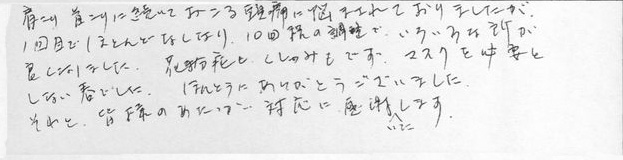 肩こり 首こりに続いておこる頭痛に悩まされておりましたが、
1回目でほとんどなしなり、10回程の調整で、いろいろな所が
良しなりました。花粉症と、しもです。マスクを必要と
しない春でした。ほんとうにありがとうございました。
それと、皆様のあたたかい対応に感謝します。